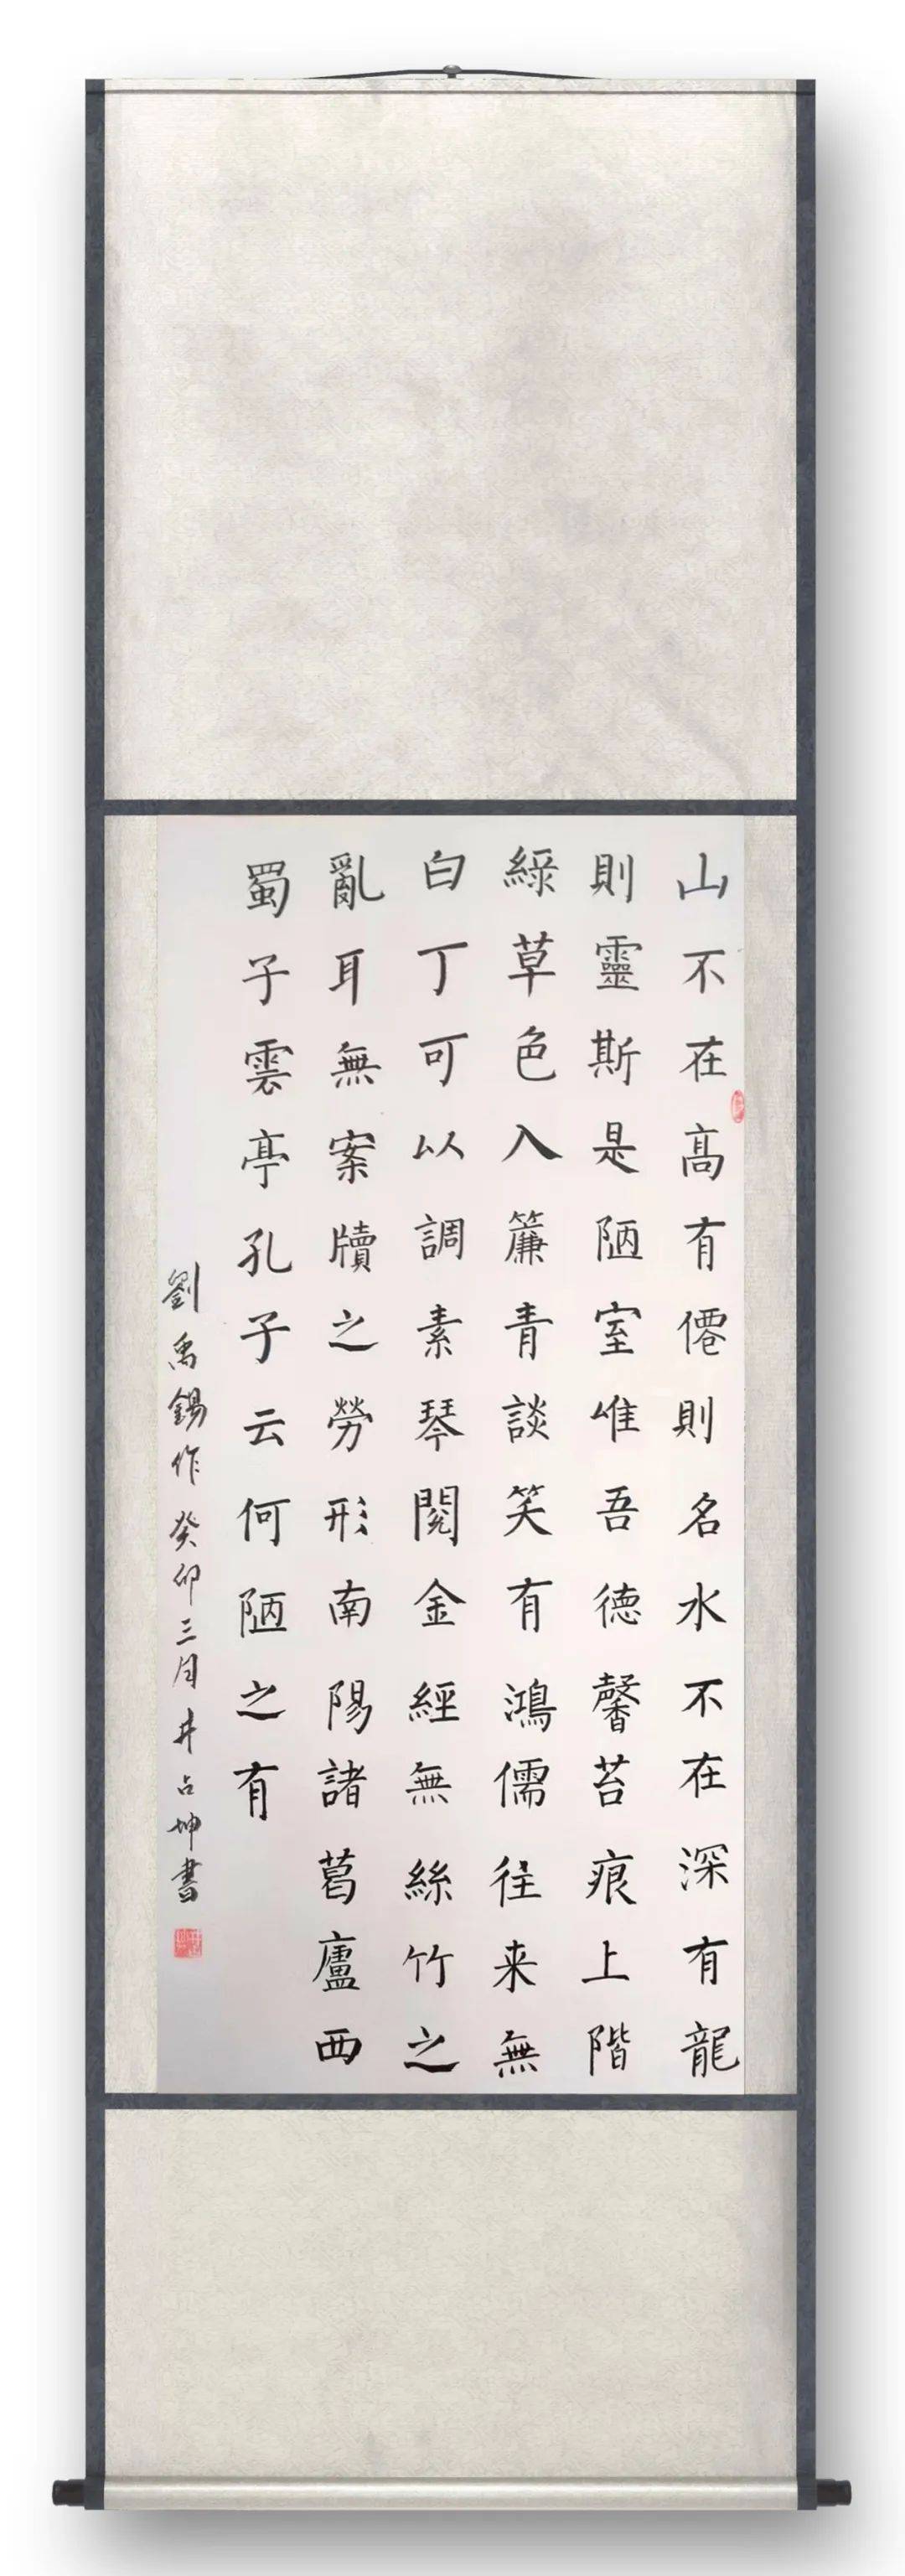 山不在高有僊則名水不在深有龍
則靈斯是陋室唯吾德馨苔痕上階
綠草色入簾青談笑有鴻儒往来無
白丁可以調素琴閱金經無絲竹之
亂耳無案牘之勞形南陽諸葛廬西
蜀子雲亭孔子云何陋之有
劉禹錫作癸卯三月井占坤書